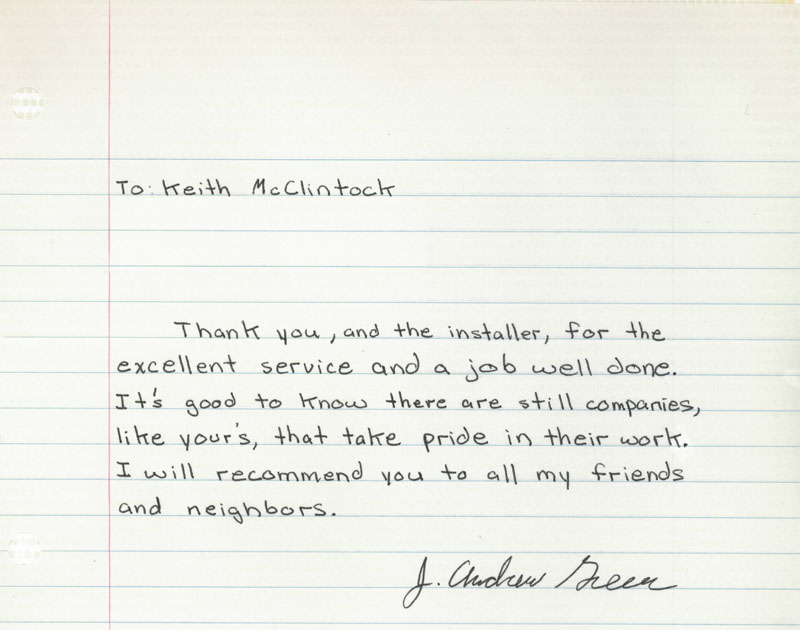 To: Keith McClintock
Thank you, and the installer, for the
excellent service and a job well done.
It's good to know there are still companies,
like your's, that take pride in their work.
I will recommend you to all my friends
and neighbors.
J. Andrew Green